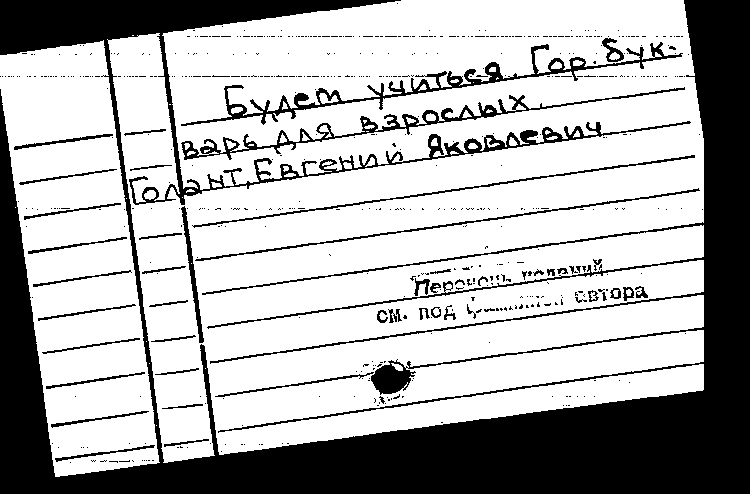 Будем учиться. Гор. бук-
варь для взрослых.
Голант, Евгений Яковлевич
Перечень изданий
см. под фамилией автора